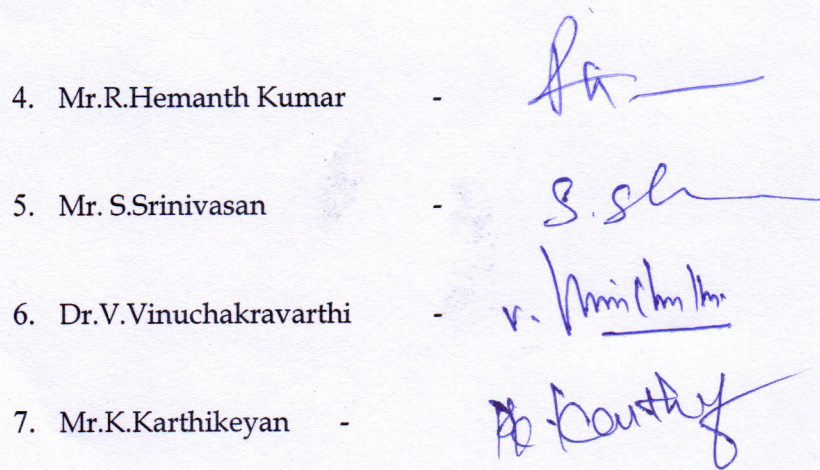 4. Mr.R.Hemanth Kumar -
5. Mr. S.Srinivasan -
6. Dr.V.Vinuchakravarthi - v.
7. Mr.K.Karthikeyan -